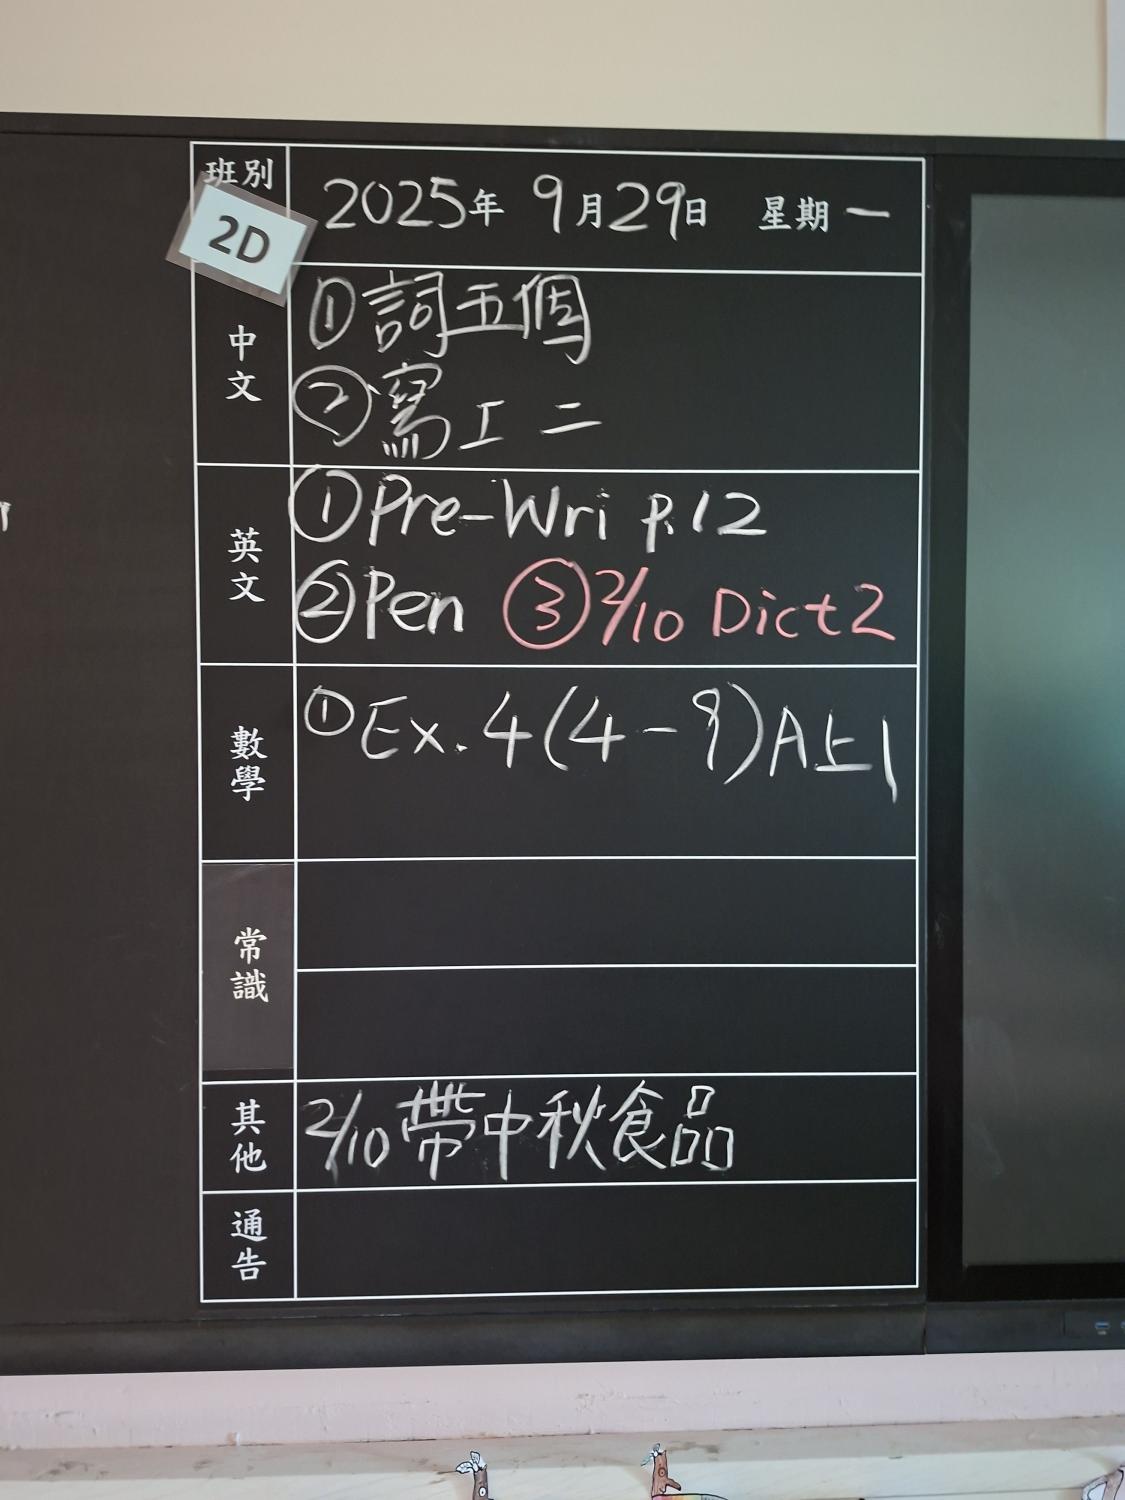 班別
2D
2025年 9月29日 星期一
中文
①詞五個
②寫工 二
英文
①Pre-Wri p.12
②Pen ③2/10 Dict 2
數學
①Ex. 4(4-9)A上1
常識
其他
2/10帶中秋食品
通告